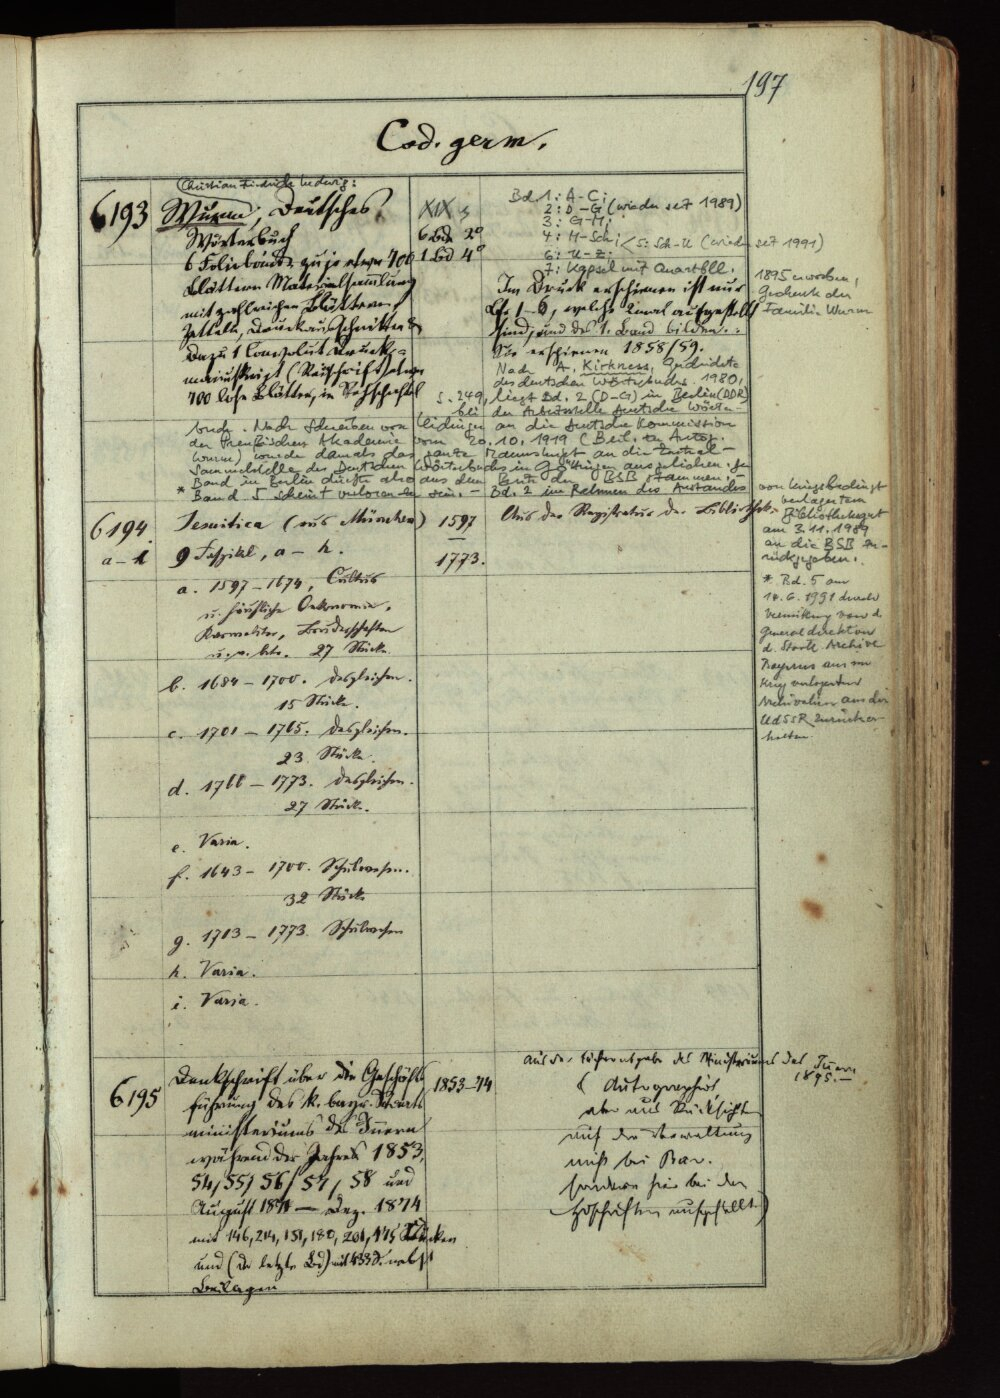 197
Cod. germ.
Christian Friedrich Ludwig:
6193
Wurm, Deutsches
Wörterbuch
6 Foliobände zu je etwa 700
Blättern Materialsammlung
mit zahlreichen Blättern,
Zetteln, Druckausschnitten
Dazu 1 Convolut Druck-
manuskript (Reinschrift) etwa
700 lose Blätter, in
XIX s
6 Bde 2°
1 Bd 4°
Bd. 1: A-C;
2: D-G (wieder seit 1989)
3: G-H;
4: H-Sch; 5: Sch-U (wieder seit 1991)
6: U-Z;
7: Kapsel mit Quartbll.
Im Druck erschienen ist nur
Lfg 1-6, welche aufgestellt
sind, und den 1. Band bilden.
Sie erschienen 1858/59.
Nach A. Kirkness, Geschichte
des deutschen Wörterbuchs. 1980,
S. 249, liegt Bd. 2 (D-G) in Berlin (DDR)
bei der Arbeitsstelle Deutsche Wörter-
buch. Nach Schreiben von an die Deutsche Kommission
der Preußischen Akademie vom 20.10.1919 (Beil. zu Autogr.
Wurm) wurde damals das ganze Manuskript an die Zentral-
Sammelstelle des Deutschen Wörterbuchs in Göttingen ausgeliehen. Der
Band in Berlin dürfte also aus dem Besitz der BSB stammen.
* Band 5 scheint verloren zu sein. – Bd. 2 im Rahmen des Austausches
1895 erworben,
Geschenk der
Familie Wurm
von kriegsbedingt
verlagertem
Bibliotheksgut
am 3.11.1989
an die BSB zu-
rückgegeben.
* Bd. 5 am
14.6.1991 durch
Vermittlung von d.
Generaldirektion
d. Staatl. Archive
Bayerns aus im
Krieg verlagerten
Archivalien aus der
UdSSR zurücker-
halten.
6194.
a-i
Jesuitica (aus München)
9 Faszikel, a-h.
1597
–
1773.
Aus der Registratur der Bibliothek.
a. 1597-1674, Cultus
u. häusliche Oekonomie,
Bruderschaften
27 Stücke
b. 1684-1700. desgleichen.
15 Stücke.
c. 1701-1765. desgleichen.
23 Stücke.
d. 1760-1773. desgleichen.
27 Stück.
e. Varia.
f. 1643-1700. Schulwesen.
32 Stück
g. 1703-1773 Schulwesen
h. Varia.
i. Varia.
6195
Denkschrift über die Geschäfts-
führung des K. bayr. Staats
ministeriums des Innern
während der Jahre 1853,
54/55/56/57/58 und
August 1871 – Dez. 1874
mit 146, 214, 151, 180, 201, 175
und (der letzte Bd) mit 433 S. nebst
Beilagen
1853-74
Aus der des Ministeriums des Innern
1895.–
(Autographirt,
aber aus Rücksichten
auf die Verwaltung
nicht bei Bav.
sondern hier bei den
Hdschriften aufgestellt)